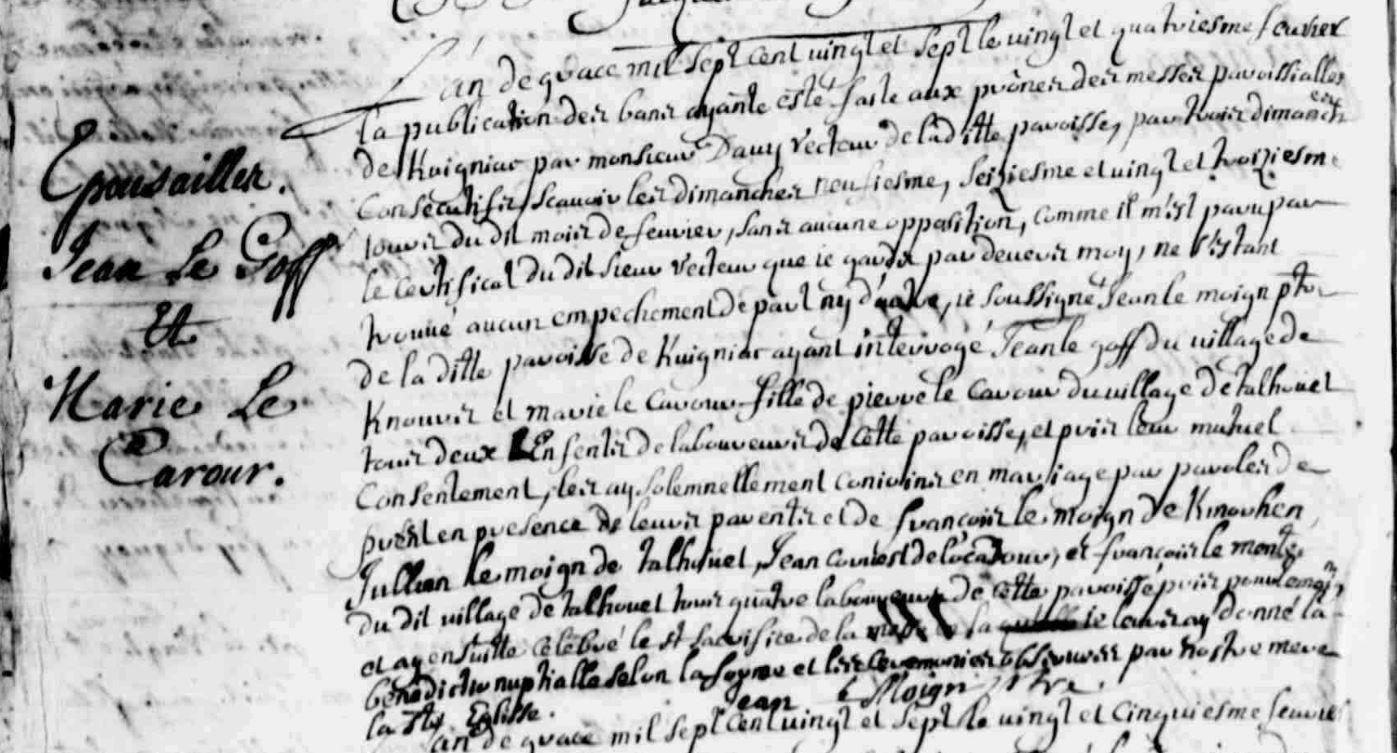 Jacqu
L'an de grace mil sept cent vingt et sept le vingt et quatriesme feuvrier
la publication des bans ayante esté faite aux prônes des messes paroissialles
de Kuigniac par monsieur Dauy recteur de la ditte paroisse, par trois dimanches
Consécutifs, scauoir les dimanches neufiesme, seiziesme et vingt et troiziesme
jours du dit mois de feuvrier, sans aucune opposition, comme il m'est paru par
le certificat du dit sieur recteur que ie garde par devers moy, ne s'estant
trouué aucun empechement de part ny d'autre, ie soussigné Jean le moign ptre
de la ditte paroisse de Kuigniac ayant interrogé Jean le goff du village de
Knouvir et marie le Carour fille de pierre le Carour du village de talhouet
tous deux Enfents de laboureurs de cette paroisse, et pris leur mutuel
Consentement, les ay solemnellement conioins en mariage par paroles de
prest en presence de leurs parents et de françois le moign de Kinouhen,
Jullien le moign de talhouet, Jean de locadour, et françois le
du dit village de talhouet tous quatre laboureurs de cette paroisse
et ay ensuitte célébré le st sacrifice de la messe la ie leurs ay donné la
benedictio nuptialle selon la forme et les ceremonies obseruees par nostre mere
la ste Eglisse. Jean le Moign ptre.
L'an de grace mil sept cent vingt et sept le vingt et cinquiesme feuvrier
Epousailles.
Jean Le Goff
Et
Marie Le
Carour.